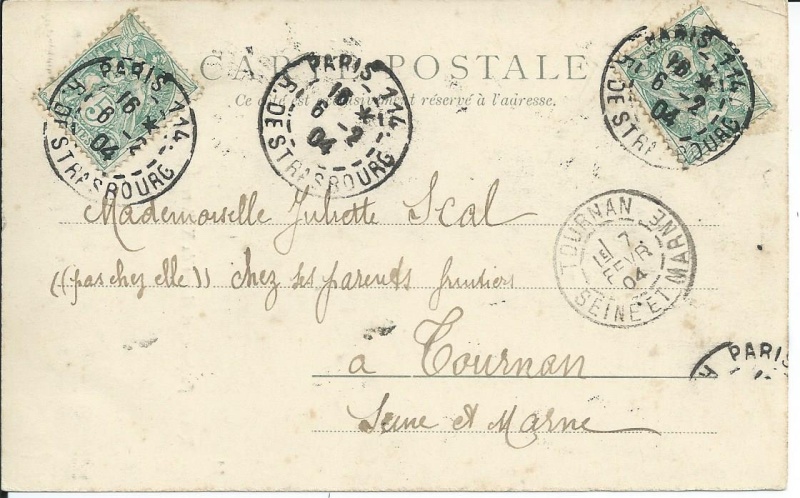 CARTE POSTALE
Ce côté est exclusivement réservé à l'adresse.
PARIS 114
R. DE STRASBOURG
16 *
6 - 2
04
PARIS 114
R. DE STRASBOURG
16 *
6 - 2
04
PARIS 114
R. DE STRASBOURG
16 *
6 - 2
04
Mademoiselle Juliette Scal
((pas chez elle)) chez ses parents fruitiers
à Tournan
Seine et Marne
TOURNAN
SEINE ET MARNE
7
FEVR
04
PARIS